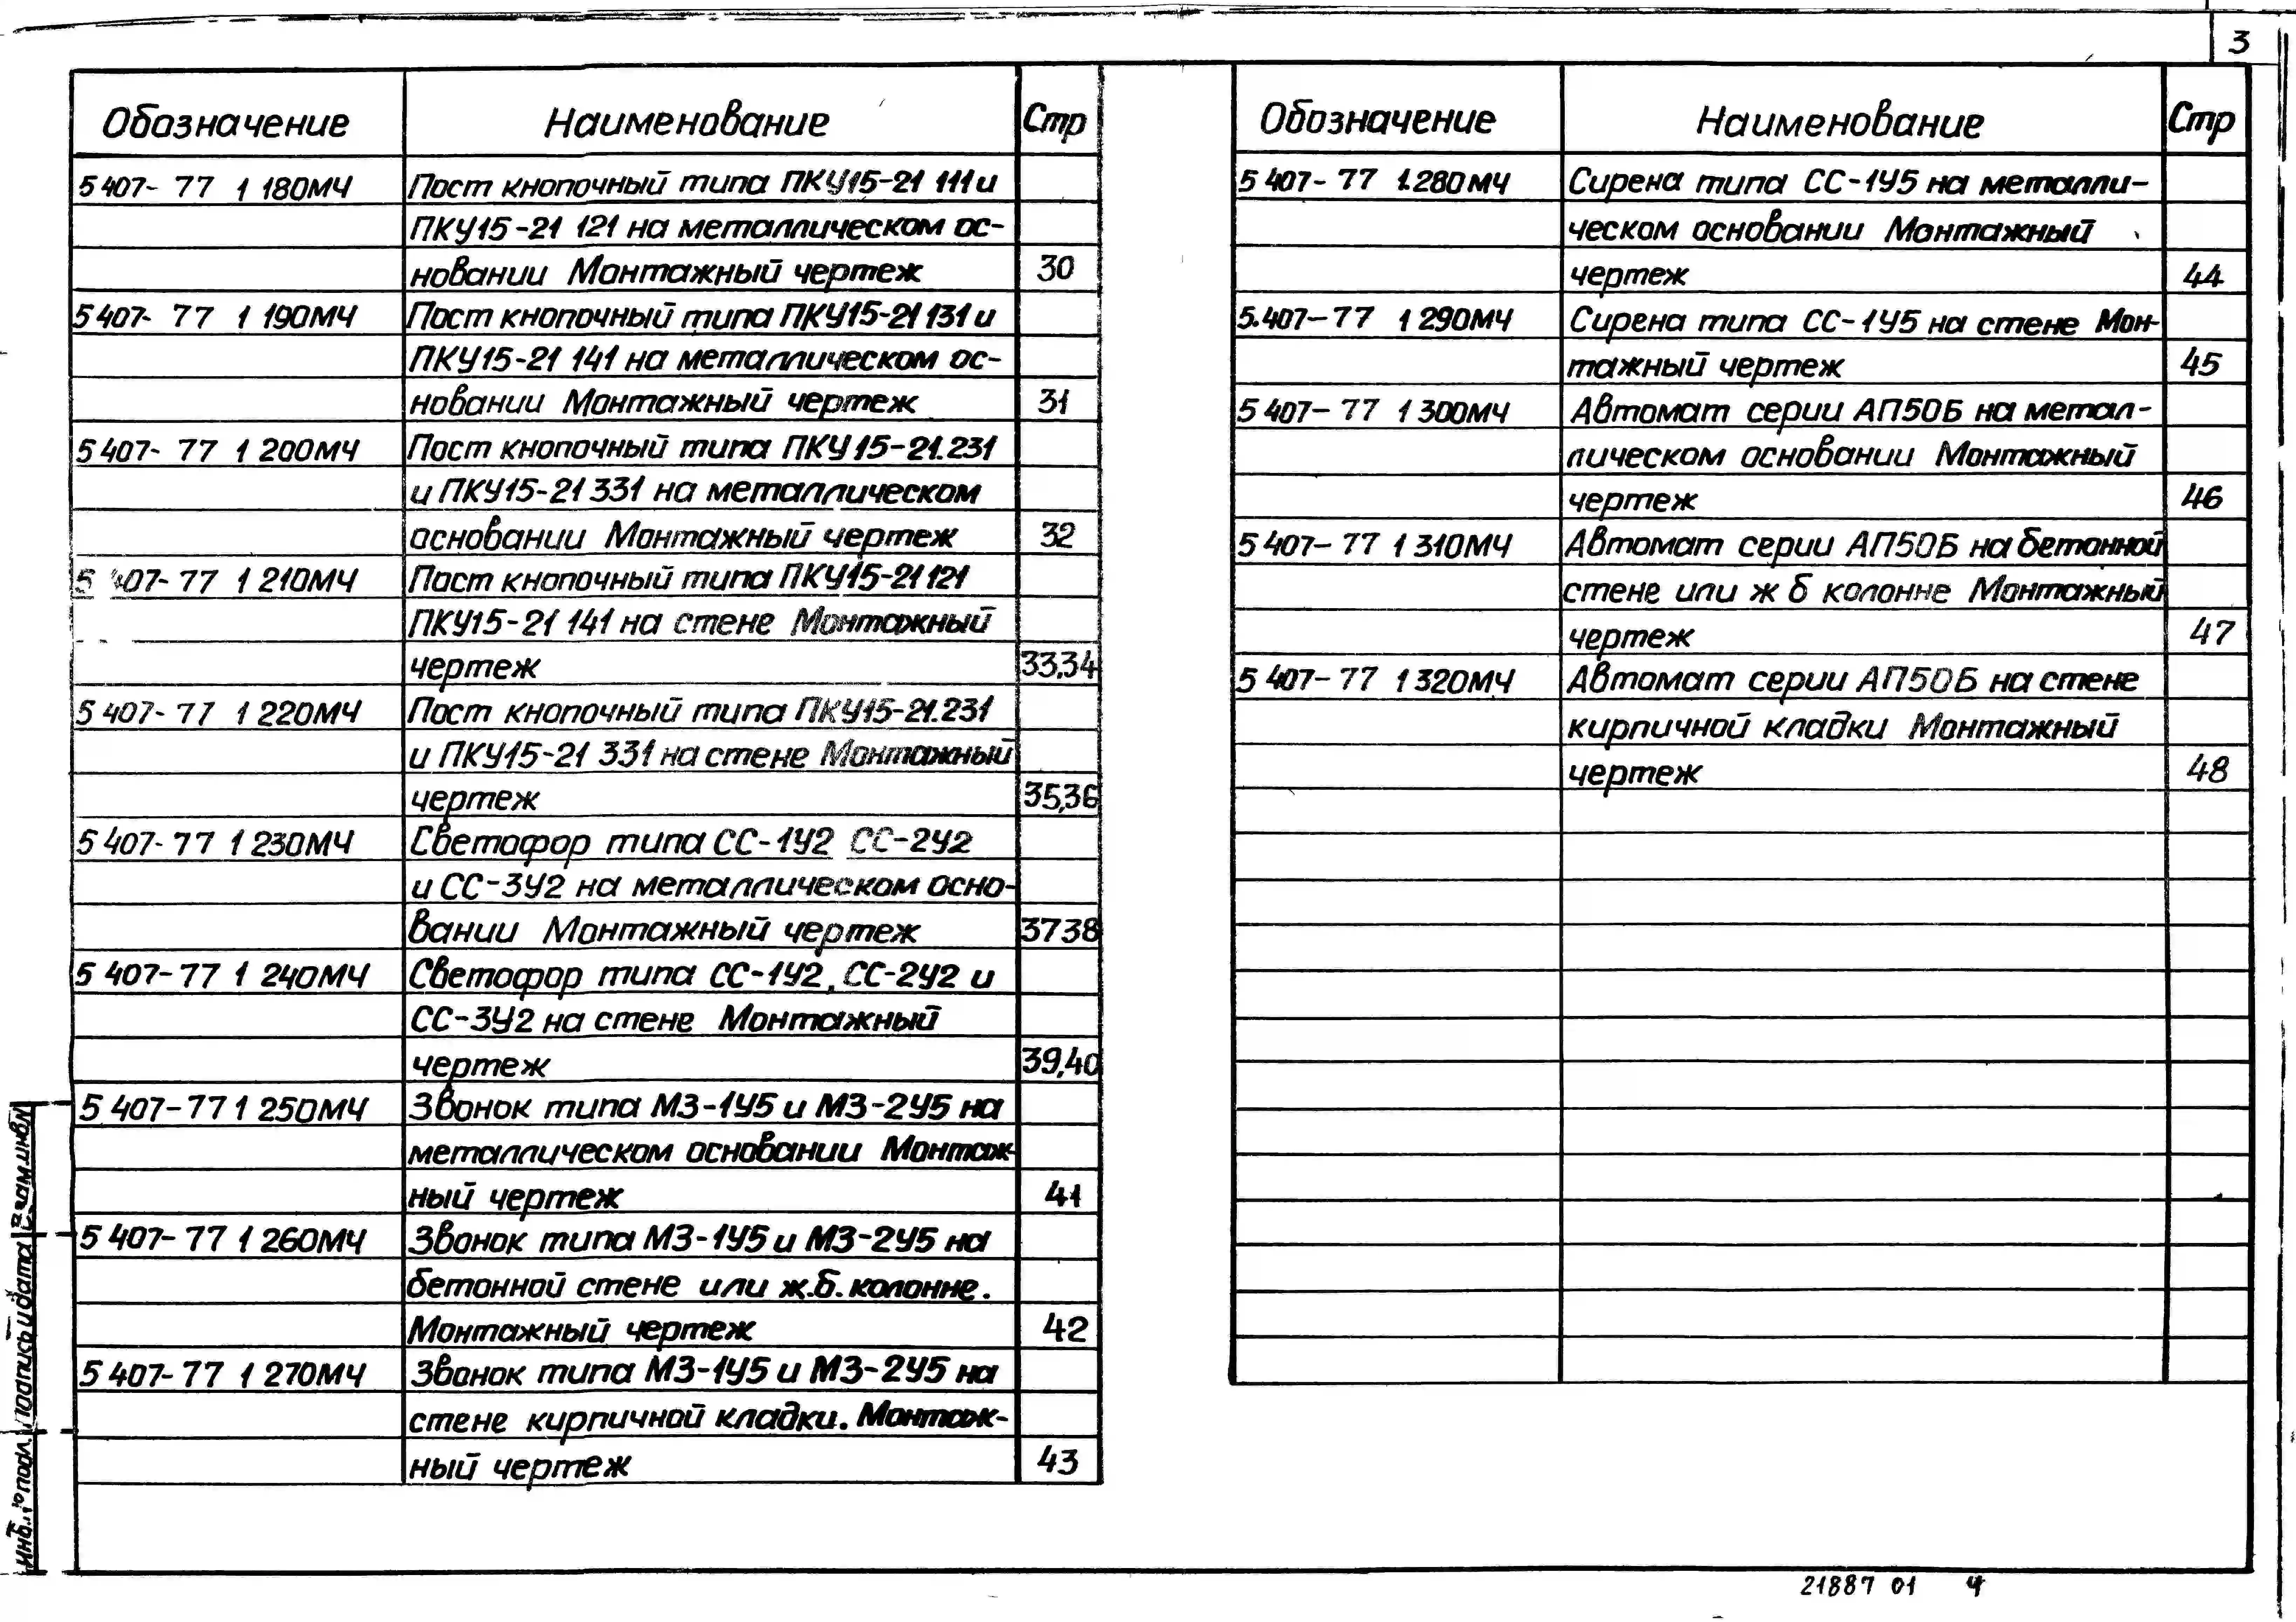 3
Обозначение Наименование Стр
5 407- 77 1 180МЧ Пост кнопочный типа ПКУ15-21 111 и
ПКУ15-21 121 на металлическом ос-
новании Монтажный чертеж 30
5 407- 77 1 190МЧ Пост кнопочный типа ПКУ15-21 131 и
ПКУ15-21 141 на металлическом ос-
новании Монтажный чертеж 31
5 407- 77 1 200МЧ Пост кнопочный типа ПКУ15-21.231
и ПКУ15-21 331 на металлическом
основании Монтажный чертеж 32
5 407- 77 1 210МЧ Пост кнопочный типа ПКУ15-21 121
ПКУ15-21 141 на стене Монтажный
чертеж 33,34
5 407- 77 1 220МЧ Пост кнопочный типа ПКУ15-21.231
и ПКУ15-21 331 на стене Монтажный
чертеж 35,36
5 407- 77 1 230МЧ Светофор типа СС-1У2 СС-2У2
и СС-3У2 на металлическом осно-
вании Монтажный чертеж 37 38
5 407-77 1 240МЧ Светофор типа СС-1У2, СС-2У2 и
СС-3У2 на стене Монтажный
чертеж 39,40
5 407-77 1 250МЧ Звонок типа МЗ-1У5 и МЗ-2У5 на
металлическом основании Монтаж-
ный чертеж 41
5 407-77 1 260МЧ Звонок типа МЗ-1У5 и МЗ-2У5 на
бетонной стене или ж.б. колонне.
Монтажный чертеж 42
5 407-77 1 270МЧ Звонок типа МЗ-1У5 и МЗ-2У5 на
стене кирпичной кладки. Монтаж-
ный чертеж 43
Обозначение Наименование Стр
5 407- 77 1.280МЧ Сирена типа СС-1У5 на металли-
ческом основании Монтажный
чертеж 44
5.407-77 1 290МЧ Сирена типа СС-1У5 на стене Мон-
тажный чертеж 45
5 407- 77 1 300МЧ Автомат серии АП50Б на метал-
лическом основании Монтажный
чертеж 46
5 407- 77 1 310МЧ Автомат серии АП50Б на бетонной
стене или ж б колонне Монтажный
чертеж 47
5 407-77 1 320МЧ Автомат серии АП50Б на стене
кирпичной кладки Монтажный
чертеж 48
Инв. № подл. Подпись и дата Взам инв №
21887 01 4